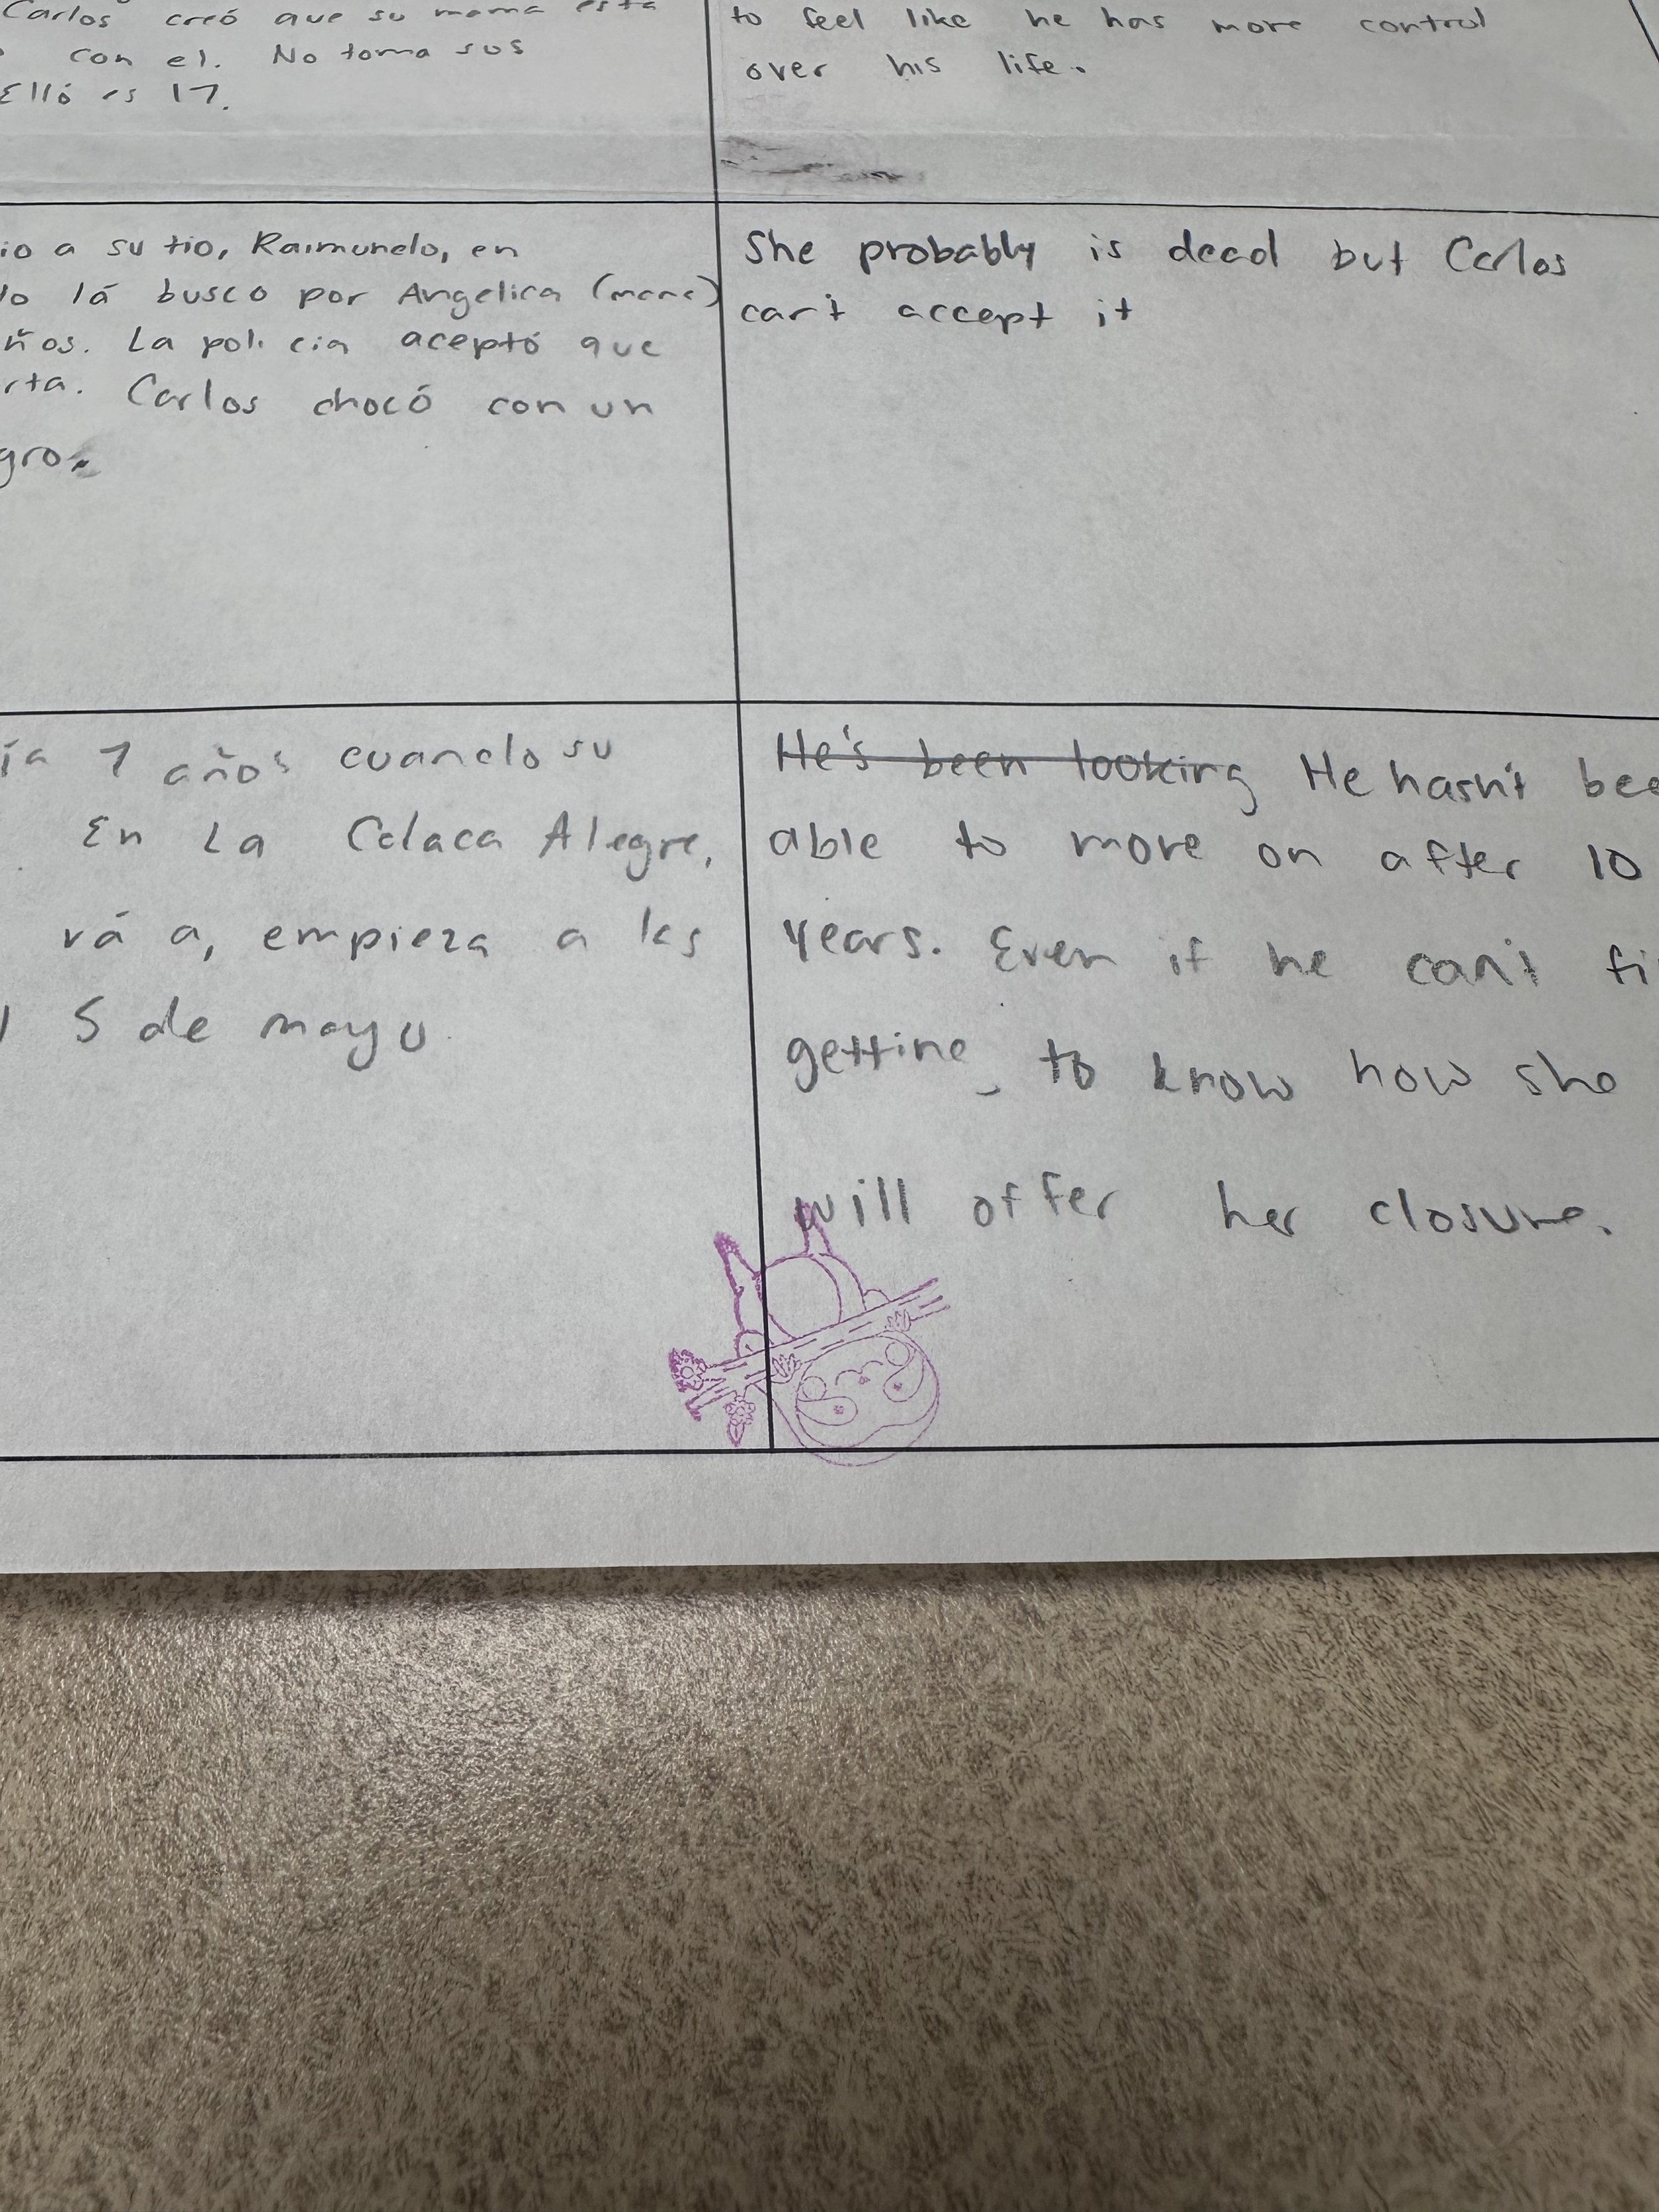 Carlos creó que su mama esta
con el. No toma sus
Elló es 17.
to feel like he has more control
over his life.
io a su tio, Raimundo, en
lo lá busco por Angelica (mama)
ños. La policia aceptó que
rta. Carlos chocó con un
gro.
She probably is dead but Carlos
can't accept it
ía 7 años cuando su
En La Calaca Alegre,
vá a, empieza a las
5 de mayo.
He's been looking He hasn't bee
able to move on after 10
years. Even if he can't fi
getting to know how she
will offer her closure.